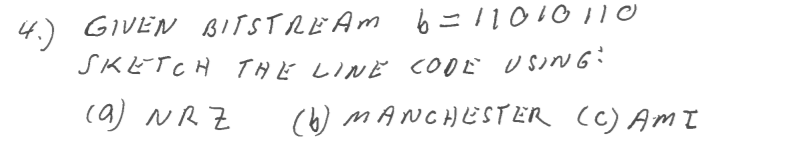 4.) GIVEN BITSTREAM b = 11010110
SKETCH THE LINE CODE USING:
(a) NRZ (b) MANCHESTER (c) AMI